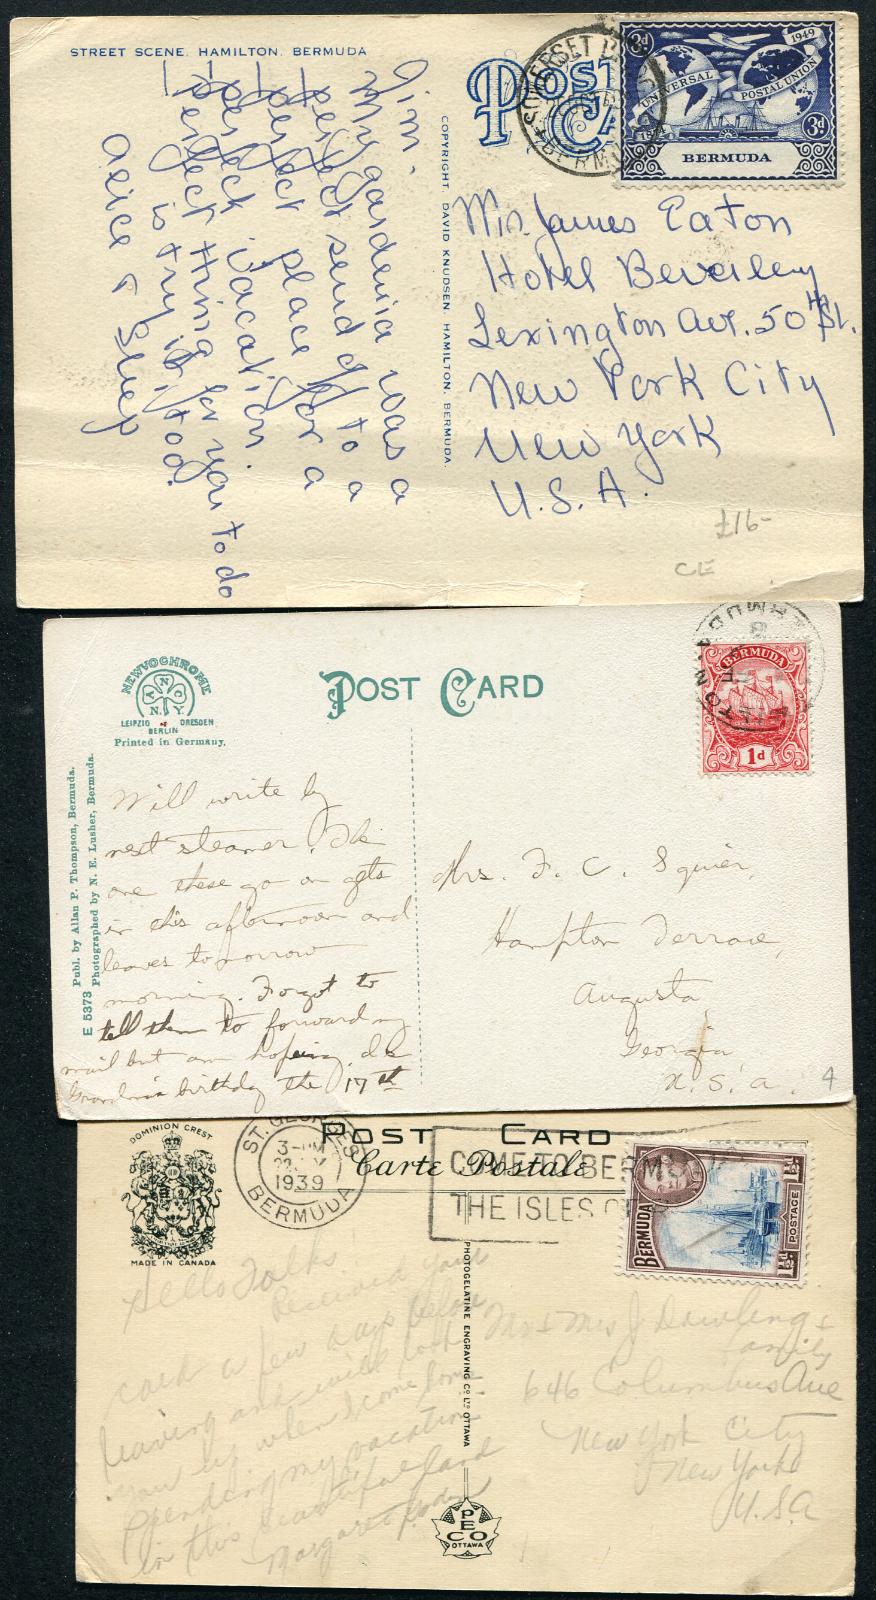 STREET SCENE, HAMILTON, BERMUDA
Jim.
My gardenia was a
perfect send off to a
perfect place for a
perfect vacation.
perfect thing for you to do
is try it, too.
Alice & Shep
COPYRIGHT, DAVID KNUDSEN, HAMILTON, BERMUDA.
POST
CA
SOMERSET
BERMUDA
3d
1949
UNIVERSAL
POSTAL UNION
3d
BERMUDA
Mr. James Eaton
Hotel Beverley
Lexington Ave. 50th St.
New York City
New York
U.S.A.
£16-
CE
NEWVOCHROME
A N C
N.Y.
LEIPZIG DRESDEN
BERLIN
Printed in Germany.
POST CARD
E 5373 Publ. by Allan P. Thompson, Bermuda.
Photographed by N. E. Lusher, Bermuda.
BERMUDA
1d
Will write by
next steamer. The
one these go on gets
in this afternoon and
leaves tomorrow
morning. Forgot to
tell them to forward my
mail but am hoping.
Grandma's birthday the 17th
Mrs. F. C. Squier,
Hampton Terrace,
Augusta
Georgia
U.S.A.
4
DOMINION CREST
MADE IN CANADA
ST. GEORGES
3-PM
22
1939
BERMUDA
POST CARD
Carte Postale
COME TO BERMUDA
THE ISLES OF
BERMUDA
1½d
POSTAGE
1½d
PHOTOGELATINE ENGRAVING CO. LTD. OTTAWA
PECO
OTTAWA
Hello Folks!
Received your
card a few days before
leaving and will look
you up when I come home
Spending my vacation
in this beautiful land
Margaret
Mr & Mrs J Dowling &
family
646 Columbus Ave
New York City
New York
U.S.A